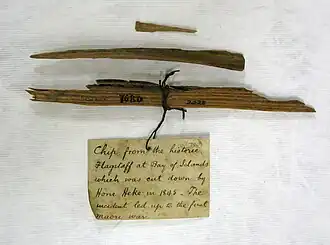 Chip from the historic
Flagstaff at Bay of Islands
which was cut down by
Hone Heke in 1845. The
incident led up to the first
Maori war.